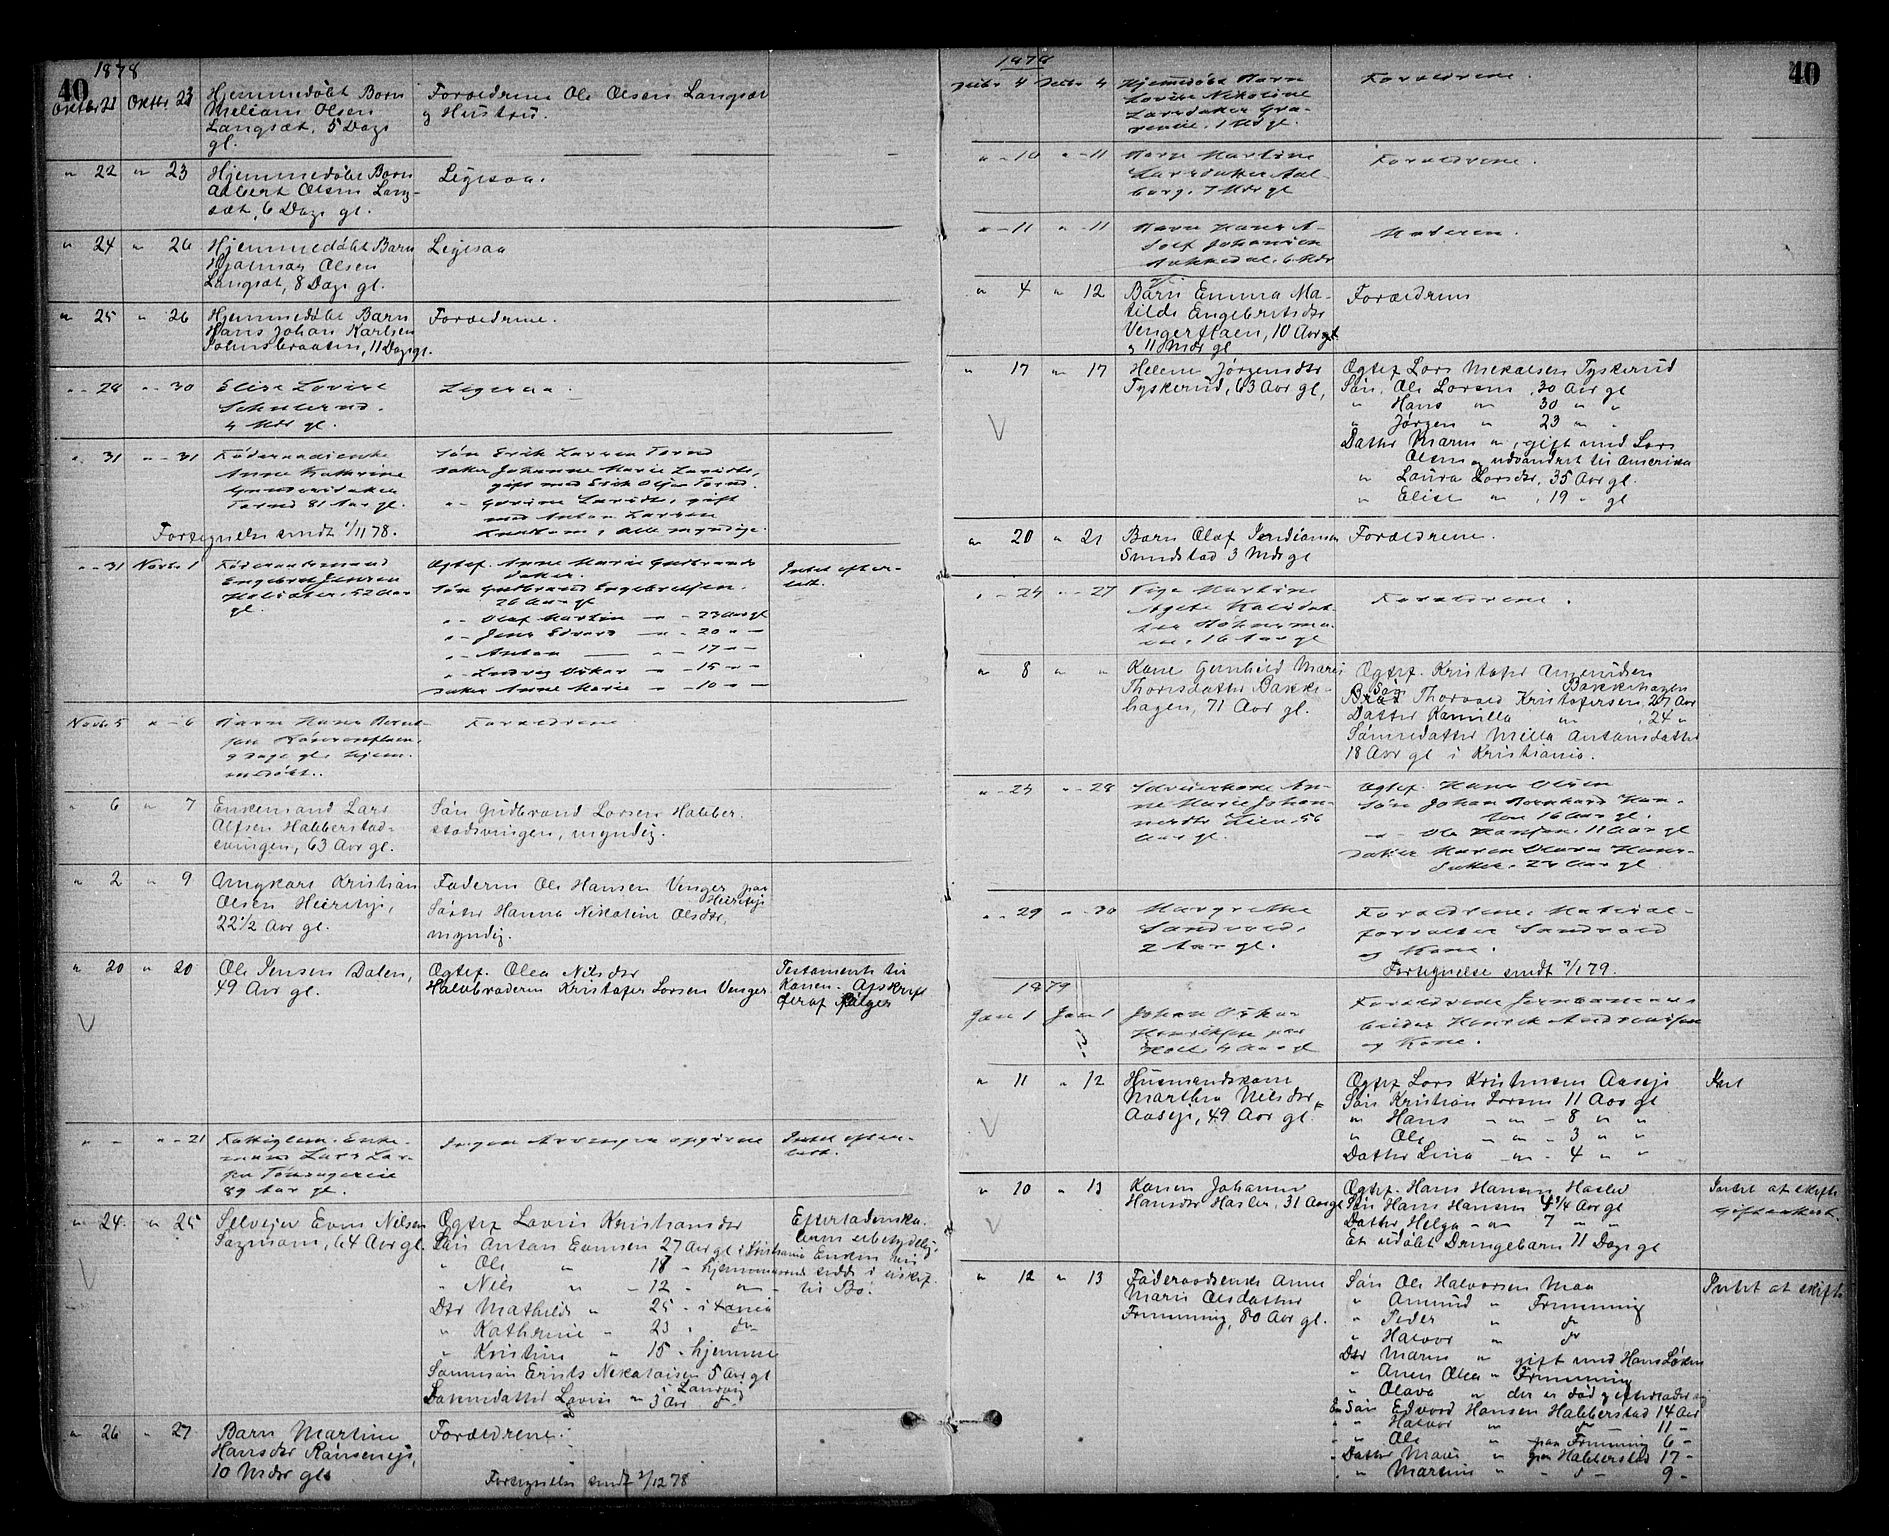 40
1878
Oktbr 21 Oktbr 23 Hjemmedøbt Barn Foræeldrene Ole Olsen Langsæt
Meliam Olsen og Hustru.
Langsæt, 5 Dage
gl.
" 22 " 23 Hjemmedøbt Barn Ligesaa.
Albert Olsen Lang-
sæt, 6 Dage gl.
" 24 " 26 Hjemmedøbt Barn Ligesaa
Hjalmar Olsen
Langsæt, 8 Dage gl.
" 25 " 26 Hjemmedøbt Barn Forældrene.
Hans Johan Karlsen
Johnsbraaten, 11 Dage gl.
" - 28 " - 30 Elise Lovise Ligesaa.
4 Mdr gl.
" 31 " - 31 Føderaadsenke Søn Erik Larsen Torud
Anne Kathrine Datter Johanne Marie Larsdtr,
Gundersdatter gift med Erik Olsen Torud.
Torud 81 Aar gl. " - Gorine Larsdtr, gift
med Anton Larsen
alle myndige.
Fortegnelse sendt 1/11 78.
" - 31 Novbr 1 Føderaadsmand Ogtef. Anne Marie Gudbrands- Intet efter-
Engebret Jensen datter. ladt.
52 Aar Søn Gudbrand Engebretsen
gl. 26 Aar gl
" - Olaf Martin — " - 23 Aar gl
" - Jens Edvard — " - 20 " —
" - Anton — " — 17 " —
" - Ludvig Oskar — " - 15 " -
Datter Anne Marie — " - 10 " —
Novbr 5 " - 6 Barn Hans Bernt- Forældrene.
sen
9 Dage gl. hjem-
medøbt.
" 6 " 7 Enkemand Lars Søn Gudbrand Larsen Habber-
Alfsen Habberstad- stadsvingen, myndig.
svingen, 63 Aar gl.
" 2 " 9 Ungkarl Kristian Faderen Ole Hansen Venger paa
Olsen Heiretejs, Heiretejs
22 1/2 Aar gl. Søster Hanna Nikoline Olsdtr,
myndig.
" 20 " 20 Ole Jensen Dalen, Ogtef. Olea Nilsdtr Testamente til
49 Aar gl. Halvbroderen Kristofer Larsen Venger Konen. Afskrift
V deraf følger
" - " - 21 Fattiglem. Enke- Ingen Arvinger opgivne Intet efter-
mand Lars Lar- ladt.
sen
89 Aar gl.
" 24 " 25 Selveier Even Nilsen Ogtef Lovise Kristiansdtr Efterladenska-
Sagmoen, 64 Aar gl. Søn Anton Evensen 27 Aar gl i Kristiania
V " Ole " 18 - hjemmeværende
" Nils " - 12 - " - til Bo.
Dtr Mathilde " 25 -
" Kathrine " 23 " do
" Kristine " 15 - hjemme
Sønnesøn Ernst Nikolaisen 5 Aar gl
Datterdatter Lovise " 3 Aar do
" 26 " 27 Barn Martine Forældrene.
Hansdtr
10 Mdr gl
Fortegnelse sendt 2/12 78
40
1878
Decbr 4 Decbr 4 Hjemmedøbt Barn Forældrene.
Lovise Nikoline
Larsdatter
1 Md gl.
" - 10 " - 11 Barn Martine Forældrene.
Larsdatter Aal-
borg. 7 Mdr gl
" - 11 " - 11 Barn Hans A- Moderen.
dolf Johansen
6 Mdr
" 4 " 12 Barn Emma Ma- Forældrene
tilde Engebretsdtr
Vengerflaen, 10 Aar gl
og 11 Mdr gl
" 17 " 17 Helene Jørgensdtr Ogtef Lars Mikalsen Tyskerud
Tyskerud, 63 Aar gl, Søn. Ole Larsen 30 Aar gl
" Hans " 30 " "
V " Jørgen " 23 " "
Datter Maren " , gift med Lars
Olsen og udvandret til Amerika
" Laura Larsdtr, 35 Aar gl.
" Elise " , 19 " gl
" 20 " 21 Barn Olaf Forældrene.
Sundstad 3 Mdr gl
" - 24 " - 27 Pige Martine Forældrene.
Agete
16 Aar gl
" 8 " " Kone Gunhild Marie Ogtef. Kristofer Amundsen
Thorsdatter Bakke- Bakkehagen
hagen, 71 Aar gl. Søn Thorvald Kristofersen, 27 Aar
Datter Kamilla " , 24 "
Sønnedatter Milla Antonsdatter
18 Aar gl i Kristiania.
" - 23 " - 28 Selveierkone An- Ogtef. Hans Olsen
ne Marie Johan- Søn Johan Bernhard Han-
nesdtr Lien, 56 sen 16 Aar gl.
Aar gl. " - Ole Hansen, 11 Aar gl
Datter Maren Olava Hans-
datter, 24 Aar gl
" - 29 " - 30 Margrethe Forældrene, Material-
Sandvold, forvalter Sandvold
2 Aar gl. og Kone.
Fortegnelse sendt 2/1 79.
1879
Jan 1 Jan 1 Johan Oskar Forældrene Jernbanear-
Henriksen paa beider Henrik Andreassen
4 Aar gl og Kone.
" 11 " 12 Husmandskone Ogtef Lars Kristensen Aaseje
Marthea Nilsdtr Søn Kristian Larsen 11 Aar gl
Aaseje, 49 Aar gl. " Hans - " - 8 " "
V " Ole - " - 3 " "
Datter Lina - " - 4 " "
" 10 " 13 Konen Johanne Ogtef. Hans Hansen Hasler Intet at skifte
Hansdtr Hasler, 31 Aar gl Søn Hans Hansen 4 3/4 Aar gl
V Datter Helga - " - 7 " "
Et udøbt Drengebarn 11 Dage gl
" 12 " 13 Føderaadsenke Anne Søn Ole Halvorsen Moa Intet at skifte
Marie Olsdatter " Amund " Fremming
Fremming, 80 Aar gl. " Peder " do
" Halvor " do
Dtr Maren " gift med Hans
" Anen Olea " Fremming
" Olava " der er død og efterlader sig
En Søn Edvard Hansen Habberstad 14 Aar
" " Halvor " do 11 -
" " Ole " paa Fremming 6 -
" Datter Marie " paa Habberstad 17 -
" " Martine " - do - 9 -